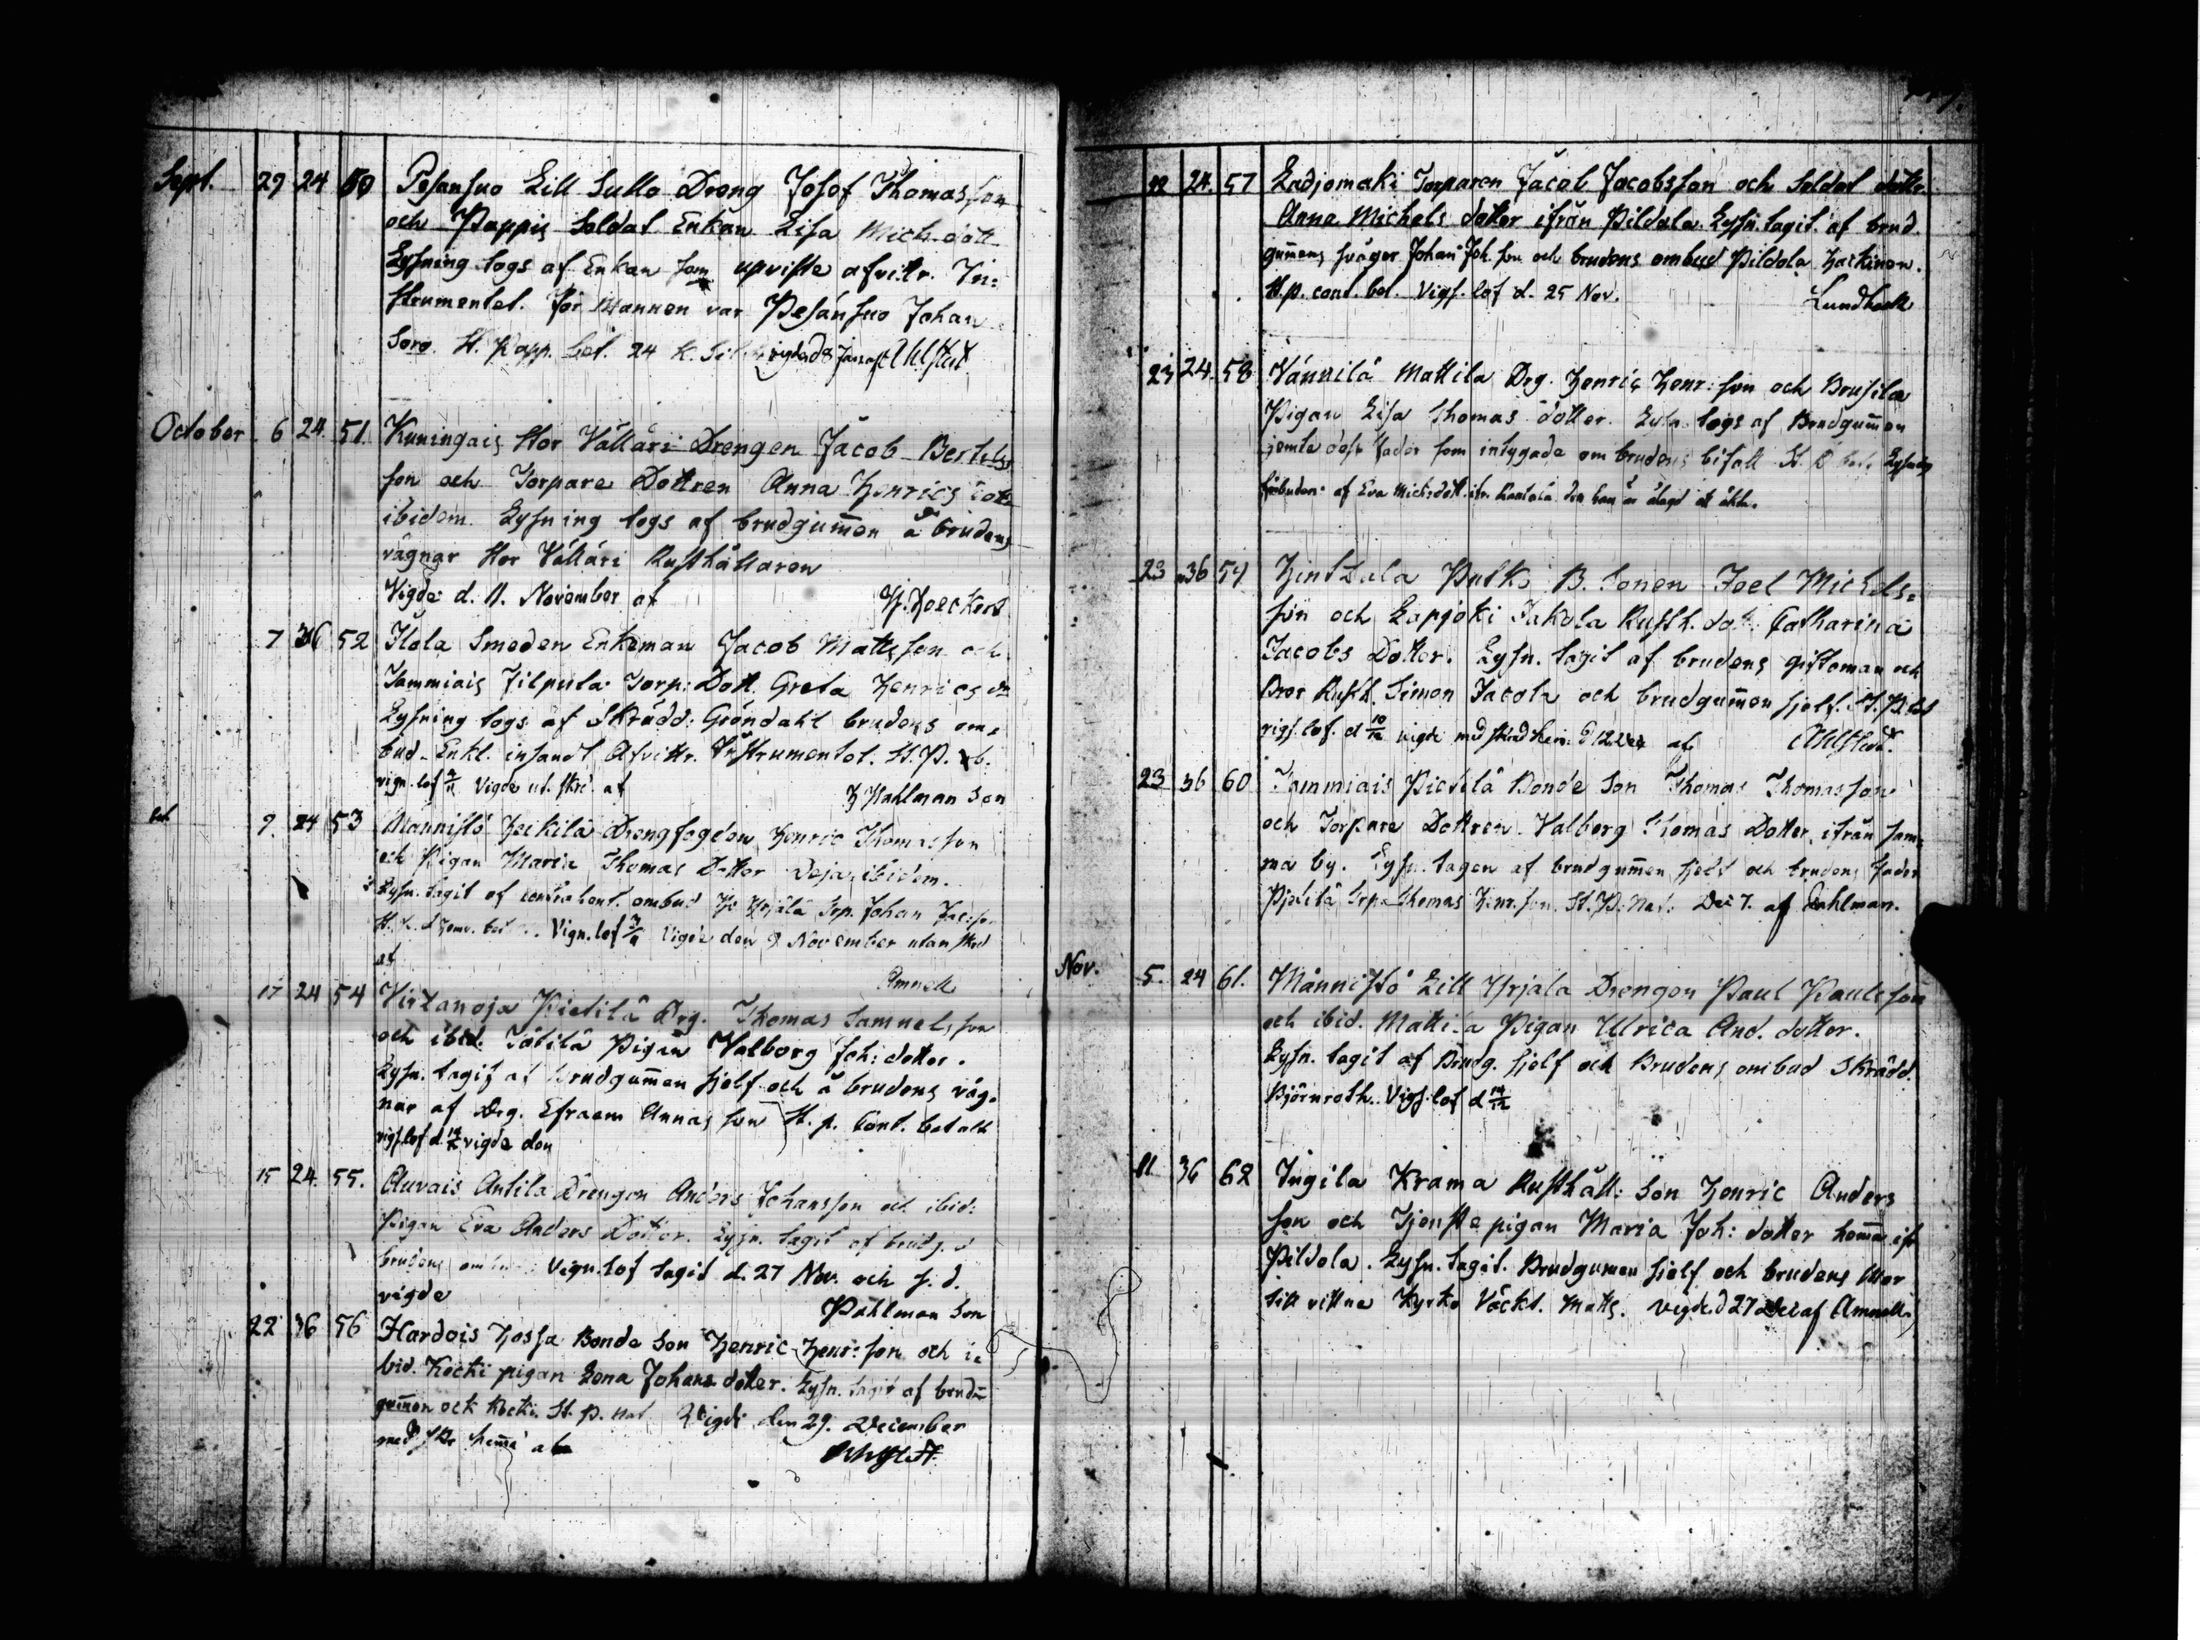 Sept. 29 24 50 Pesansuo Lill Sullo Dreng Josef Thomasson
och Pappis Soldat Enkan Lisa Mich. dott
Lysning togs af Enkan som upviste afvittr. In-
strumentet. För Mannen var Pesänsuo Johan
Soro. St. Papp. bet. 24 k. Ahlstedt
October 6 24 51. Kuningais Stor Välläri Drengen Jacob Bertels
son och Torpare Dottren Anna Henrics dott
ibidem. Lysning togs af brudgum̄en å brudens
vägnar Stor Välläri Rusthållaren
Vigde d. 11. November af H. Zoeckert
7 36 52 Ilola Smeden Enkeman Jacob Matts son och
Tammiais Filpula Torp: Dott. Greta Henrics dr
Lysning togs af Skrädd: Gröndahl brudens om-
bud. Enkl. insandt Afvittr. Instrumentet. St. P.
vign. lof Vigde ut. skri. af Pahlman Son
9. 24 53 Mannistö Jeikilä Drengfogden Henric Thomasson
och Pigan Maria Thomas Dotter Deja ibidem.
Lysn. tagit af contrahent. ombud Yrjälä Trp. Johan
Vign. lof Vigde den 8 November utan skud
af Amnell
17 24 54 Virtanoja Pietilä Drg. Thomas Samuels son
och ibid. Pigan Valborg Joh: dotter.
Lysn. tagit af brudgum̄en sjelf och å brudens väg-
nar af Drg. Efraem Annas son St. p. Cont. betalt
vigs. lof d. vigde den
15 24. 55. Auvais Antila Drengen Anders Johansson och ibid:
Pigan Eva Anders Dotter. Lysn. tagit af brudg. o
brudens ombud Vign. lof tagit d. 27 Nov. och s. d.
vigde Pahlman Son
22 36 56 Hardois Hossa Bonde Son Henric Henr: son och i-
bid. Kocki pigan Lena Johans doter. Lysn. tagit af brud-
gum̄en och Kocki. St. P. Nat. Vigdi den 29. December
med hem̄a af Ahlstedt
22 24. 57 Ladjomaki Torparen Jacob Jacobsson och Soldat dottr.
Anna Michels dotter ifrån Pildala. Lysn. tagit af brud
gum̄ens svåger Johan Joh. son och brudens ombud Pildola Harkinen.
St. p. cont. bet. Vigs. lof d. 25 Nov. Lundbeck
23 24. 58 Vännilä Mattila Drg. Henric Henr: son och Brusila
Pigan Lisa Thomas dotter. Lysn. togs af Brudgum̄en
jemte dess fader som intygade om brudens bifall St. P. bet. Lysning
förbuden af Eva Micksdott. ifr. den han är ålagd at äkta.
23 36 59 Hintzala Pulk B. Sonen Joel Michels-
son och Lapjoki Jakola Rusth. dot. Catharina
Jacobs Dotter. Lysn. tagit af brudens giftoman och
Bror Rusth. Simon Jacola och brudgum̄en sjelf. St. P. bet
vigs. lof. d 10/12 vigde af Ahlstedt.
23 36 60 Tammiais Pietilä Bonde Son Thomas Thomasson
och Torpare Dottren Valborg Thomas Dotter ifrån sam-
ma by. Lysn. tagen af brudgum̄en sjelf och brudens fader
Pjetilä Trp. Thomas Henr. son. St. P. Nat. Dec 7. af Pahlman.
Nov. 5. 24 61. Männistö Lill Yrjala Drengen Paul Paulsson
och ibid. Mattila Pigan Ulrica And. dotter.
Lysn. tagit af Brudg. sjelf och Brudens ombud Skrädd.
Björnroth. Vigs. lof d 14/12
11. 36 62 Ingila Krama Rusthåll: Son Henric Anders
son och Tjenste pigan Maria Joh: dotter hem̄a ifr
Pildola. Lysn. tagit. Brudgumen sjelf och brudens Mor
till vittne Kyrko Väckt. Matts. vigde. d 27 Dec af Amnell